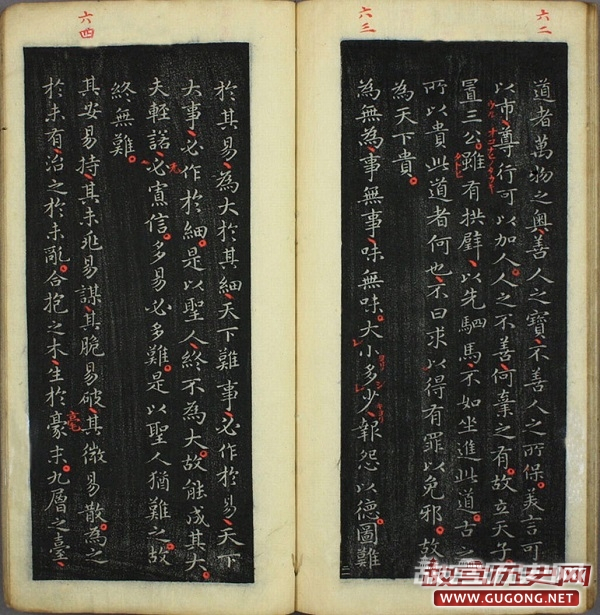 六二
道者萬物之奧善人之寶不善人之所保美言可
以市尊行可以加人人之不善何棄之有故立天子
置三公雖有拱璧以先駟馬不如坐進此道古之
所以貴此道者何也不曰求以得有罪以免邪故
為天下貴
六三
為無為事無事味無味大小多少報怨以德圖難
於其易為大於其細天下難事必作於易天下
大事必作於細是以聖人終不為大故能成其大
夫輕諾必寡信多易必多難是以聖人猶難之故
終無難
六四
其安易持其未兆易謀其脆易破其微易散為之
於未有治之於未亂合抱之木生於豪末九層之臺
故宫历史网
WWW.GUGONG.NET